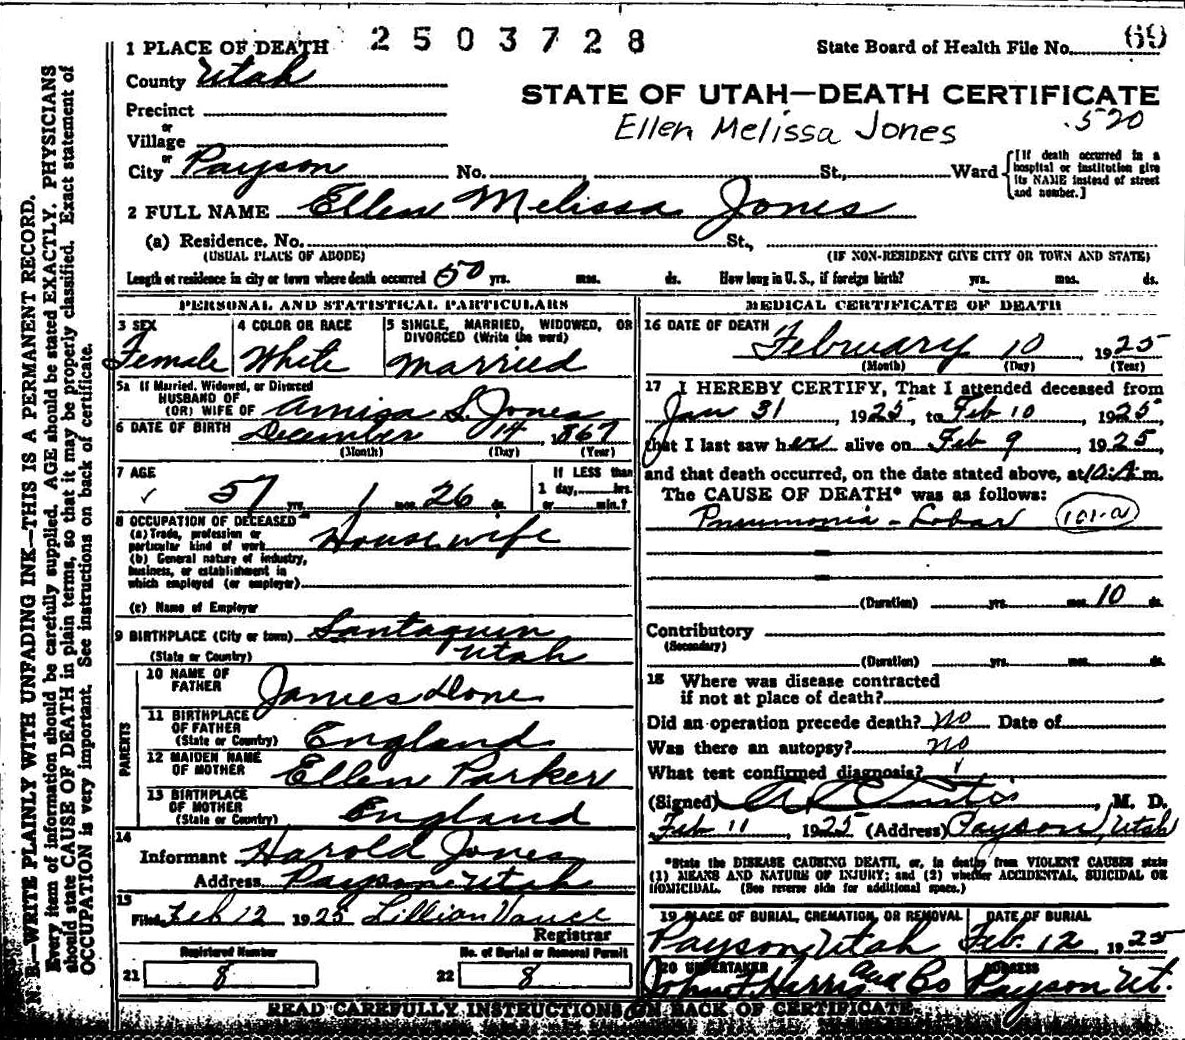 2503728
State Board of Health File No. 69
1 PLACE OF DEATH
County Utah
STATE OF UTAH—DEATH CERTIFICATE
Precinct
.520
or
Ellen Melissa Jones
Village
or
City Payson No. St., Ward
[If death occurred in a
hospital or institution give
its NAME instead of street
and number.]
2 FULL NAME Ellen Melissa Jones
(a) Residence. No. St.,
(USUAL PLACE OF ABODE) (IF NON-RESIDENT GIVE CITY OR TOWN AND STATE)
Length of residence in city or town where death occurred 50 yrs. mos. ds. How long in U. S., if foreign birth? yrs. mos. ds.
PERSONAL AND STATISTICAL PARTICULARS
3 SEX
Female
4 COLOR OR RACE
White
5 SINGLE, MARRIED, WIDOWED, OR
DIVORCED (Write the word)
Married
5a If Married, Widowed, or Divorced
HUSBAND OF
(OR) WIFE OF Amiga S. Jones
6 DATE OF BIRTH December 14, 1867
(Month) (Day) (Year)
7 AGE
57 yrs. 1 mos. 26 ds.
If LESS than
1 day, hrs.
or min.?
8 OCCUPATION OF DECEASED
(a) Trade, profession or
particular kind of work Housewife
(b) General nature of industry,
business, or establishment in
which employed (or employer)
(c) Name of Employer
9 BIRTHPLACE (City or town) Santaquin
(State or Country) Utah
PARENTS
10 NAME OF
FATHER James Done
11 BIRTHPLACE
OF FATHER
(State or Country) England
12 MAIDEN NAME
OF MOTHER Ellen Parker
13 BIRTHPLACE
OF MOTHER
(State or Country) England
14
Informant Harold Jones
Address Payson Utah
15
Filed Feb 12 1925 Lillian Vance
Registrar
Registered Number
21 8
No. of Burial or Removal Permit
22 8
MEDICAL CERTIFICATE OF DEATH
16 DATE OF DEATH
February 10, 1925
(Month) (Day) (Year)
17 I HEREBY CERTIFY, That I attended deceased from
Jan 31 1925, to Feb 10, 1925
that I last saw her alive on Feb 9 1925,
and that death occurred, on the date stated above, at 10:A.m.
The CAUSE OF DEATH* was as follows:
Pneumonia - Lobar 101-a
(Duration) yrs. mos. 10 ds.
Contributory
(Secondary)
(Duration) yrs. mos. ds.
18 Where was disease contracted
if not at place of death?
Did an operation precede death? no Date of
Was there an autopsy? no
What test confirmed diagnosis?
(Signed) , M. D.
Feb 11, 1925 (Address) Payson, Utah
*State the DISEASE CAUSING DEATH, or, in deaths from VIOLENT CAUSES state
(1) MEANS AND NATURE OF INJURY; and (2) whether ACCIDENTAL, SUICIDAL OR
HOMICIDAL. (See reverse side for additional space.)
19 PLACE OF BURIAL, CREMATION, OR REMOVAL
Payson, Utah
DATE OF BURIAL
Feb. 12 1925
20 UNDERTAKER
John T Harris and Co
ADDRESS
Payson Ut.
READ CAREFULLY INSTRUCTIONS ON BACK OF CERTIFICATE.
N. B.—WRITE PLAINLY WITH UNFADING INK—THIS IS A PERMANENT RECORD.
Every item of information should be carefully supplied. AGE should be stated EXACTLY. PHYSICIANS
should state CAUSE OF DEATH in plain terms, so that it may be properly classified. Exact statement of
OCCUPATION is very important. See instructions on back of certificate.